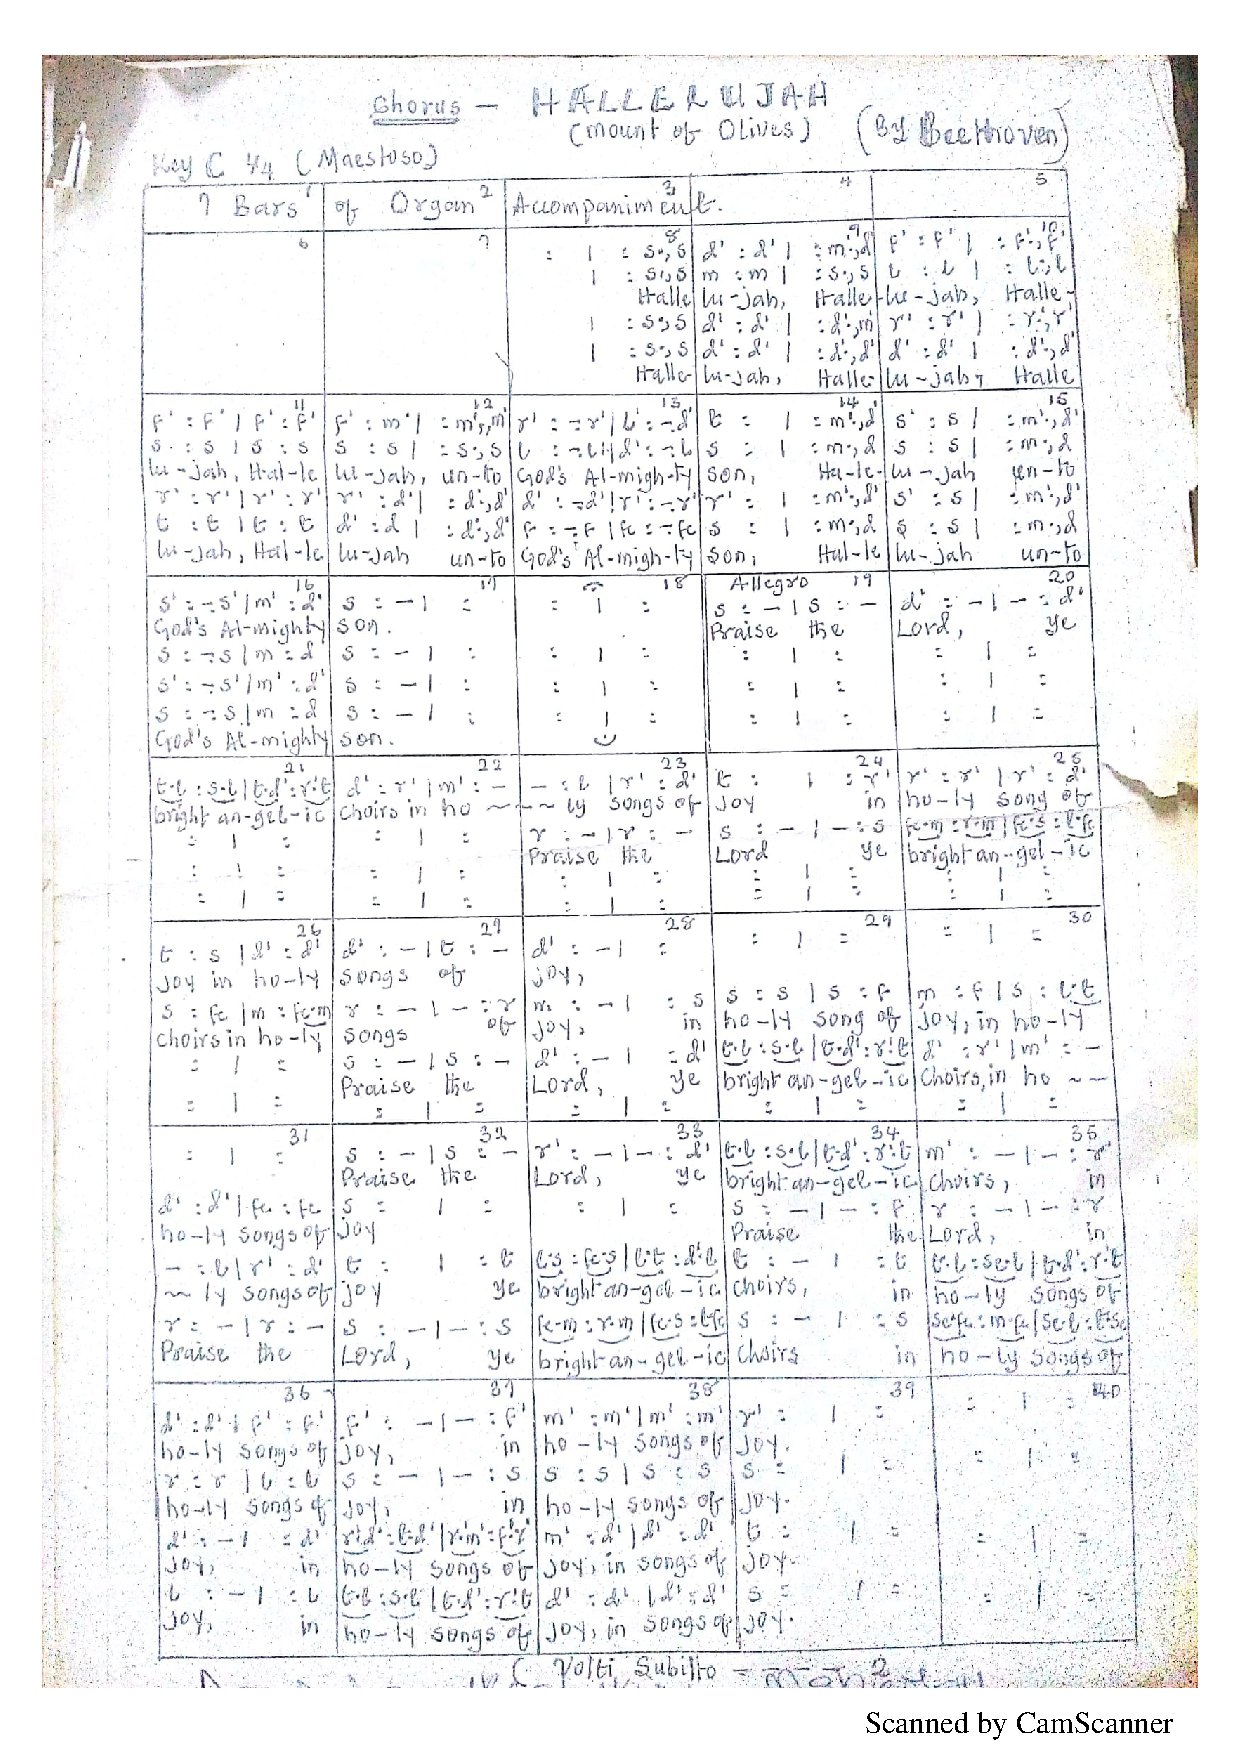 Chorus - HALLERUJAH
(Mount of Olives) (By Beethoven)
Key C 4/4 (Maestoso)
1 2 3 4 5
7 Bars of Organ Accompaniment.
6 7 8 9 10
: | : s.,s d' : d' | : m'.,d' f' : f' | : f'.,f'
| : s.,s m : m | : s.,s l : l | : l.,l
Halle lu-jah, Halle-lu-jah, Halle,
| : s.,s d' : d' | : d'.,m r' : r' | : r'.,r'
| : s.,s d' : d' | : d'.,d' d' : d' | : d'.,d'
Halle lu-jah, Halle lu-jah, Halle
11 12 13 14 15
f' : f' | f' : f' f' : m' | : m'.,m' r' : -.r' | l' : -.d' t : | : m'.,d' s' : s | : m'.,d'
s : s | s : s s : s | : s.,s l : -.l | d' : -.l s : | : m.,d s : s | : m.,d
lu-jah, Hal-le lu-jah, un-to God's Al-migh-ty son, Ha-le-lu-jah un-to
r' : r' | r' : r' r' : d' | : d'.,d' d' : -.d' | r' : -.r' r' : | : m'.,d' s' : s | : m'.,d'
t : t | t : t d' : d | : d'.,d' f : -.f | fe : -.fe s : | : m.,d s : s | : m.,d
lu-jah, Hal-le lu-jah un-to God's Al-migh-ty son, Hal-le lu-jah un-to
16 17 18 Allegro 19 20
s' : -.s' | m' : d' s : - | : : | : s : - | s : - d' : - | - : d'
God's Al-mighty son. Praise the Lord, ye
s : -.s | m : d s : - | : : | : : | : : | :
s' : -.s' | m' : d' s : - | : : | : : | : : | :
s : -.s | m : d s : - | : : | : : | : : | :
God's Al-mighty son.
21 22 23 24 25
t.l : s.l | t.d' : r'.t d' : r' | m' : - - : l | r' : d' t : | : r' r' : r' | r' : d'
bright an-gel-ic choirs in ho ~ ~ ~ ly songs of joy in ho-ly song of
: | : : | : r : - | r : - s : - | - : s fe.m : r.m | fe.s : l.fe
Praise the Lord ye bright an-gel-ic
: | : : | : : | : : | : : | :
: | : : | : : | : : | : : | :
26 27 28 29 30
t : s | d' : d' d' : - | t : - d' : - | : : | : : | :
joy in ho-ly songs of joy,
s : fe | m : fe.m r : - | - : r m : - | : s s : s | s : f m : f | s : l.t
choirs in ho-ly songs of joy, in ho-ly song of joy, in ho-ly
: | : s : - | s : - d' : - | : d' t.l : s.l | t.d' : r'.t d' : r' | m' : -
Praise the Lord, ye bright an-gel-ic choirs, in ho ~ ~
: | : : | : : | : : | : : | :
31 32 33 34 35
: | : s : - | s : - r' : - | - : d' t.l : s.l | t.d' : r'.t m' : - | - : r'
Praise the Lord, ye bright an-gel-ic choirs, in
d' : d' | fe : fe s : | : : | : s : - | - : f r : - | - : r
ho-ly songs of joy Praise the Lord, in
- : l | r' : d' t : | : t l.s : fe.s | l.t : d'.l t : - | : t t.l : se.l | t.d' : r'.t
~ ~ ly songs of joy ye bright an-gel-ic choirs, in ho-ly songs of
r : - | r : - s : - | - : s fe.m : r.m | fe.s : l.fe s : - | : s se.fe : m.fe | se.l : t.se
Praise the Lord, ye bright an-gel-ic choirs in ho-ly songs of
36 37 38 39 40
d' : d' | f' : f' f' : - | - : f' m' : m' | m' : m' r' : | : : | :
ho-ly songs of joy, in ho-ly songs of joy.
r : r | l : l s : - | - : s s : s | s : s s : | : : | :
ho-ly songs of joy, in ho-ly songs of joy.
d' : - | : d' r'.d' : t.d' | r'.m' : f'.r' m' : d' | d' : d' t : | : : | :
joy, in ho-ly songs of joy, in songs of joy.
l : - | : l t.l : s.l | t.d' : r'.t d' : d' | d' : d' s : | : : | :
joy, in ho-ly songs of joy, in songs of joy.
( Volti Subitto = - - - 2
Scanned by CamScanner